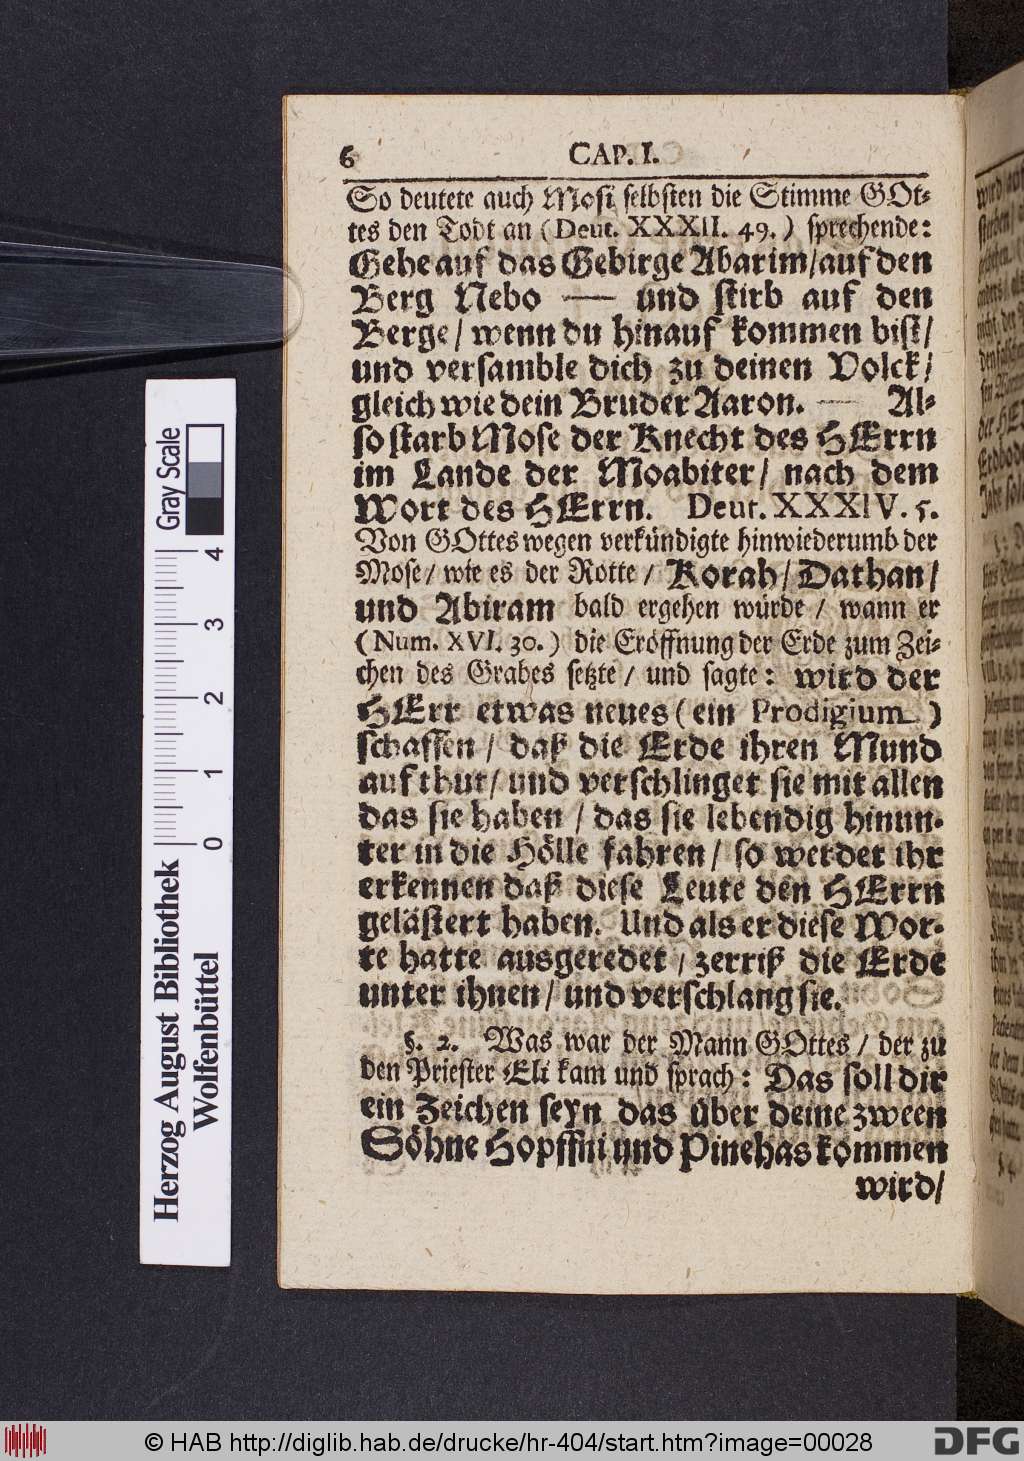 6 CAP. I.
So deutete auch Mosi selbsten die Stimme GOt-
tes den Todt an (Deut. XXXII. 49.) sprechende:
Gehe auf das Gebirge Abarim/auf den
Berg Nebo — und stirb auf den
Berge/ wenn du hinauf kommen bist/
und versamble dich zu deinen Volck/
gleich wie dein Bruder Aaron. — Al-
so starb Mose der Knecht des HErrn
im Lande der Moabiter/ nach dem
Wort des HErrn. Deut. XXXIV. 5.
Von GOttes wegen verkündigte hinwiederumb der
Mose/ wie es der Rotte/ Korah/ Dathan/
und Abiram bald ergehen würde/ wann er
(Num. XVI. 30.) die Eröffnung der Erde zum Zei-
chen des Grabes setzte/ und sagte: wird der
HErr etwas neues (ein Prodigium)
schaffen/ daß die Erde ihren Mund
aufthut/ und verschlinget sie mit allen
das sie haben/ das sie lebendig hinun-
ter in die Hölle fahren/ so werdet ihr
erkennen daß diese Leute den HErrn
gelästert haben. Und als er diese Wor-
te hatte ausgeredet/ zerriß die Erde
unter ihnen/ und verschlang sie.
§. 2. Was war der Mann GOttes/ der zu
den Priester Eli kam und sprach: Das soll dir
ein Zeichen seyn das über deine zween
Söhne Hopffni und Pinehas kommen
wird/
Herzog August Bibliothek
Wolfenbüttel
0 1 2 3 4
Gray Scale
© HAB http://diglib.hab.de/drucke/hr-404/start.htm?image=00028
DFG